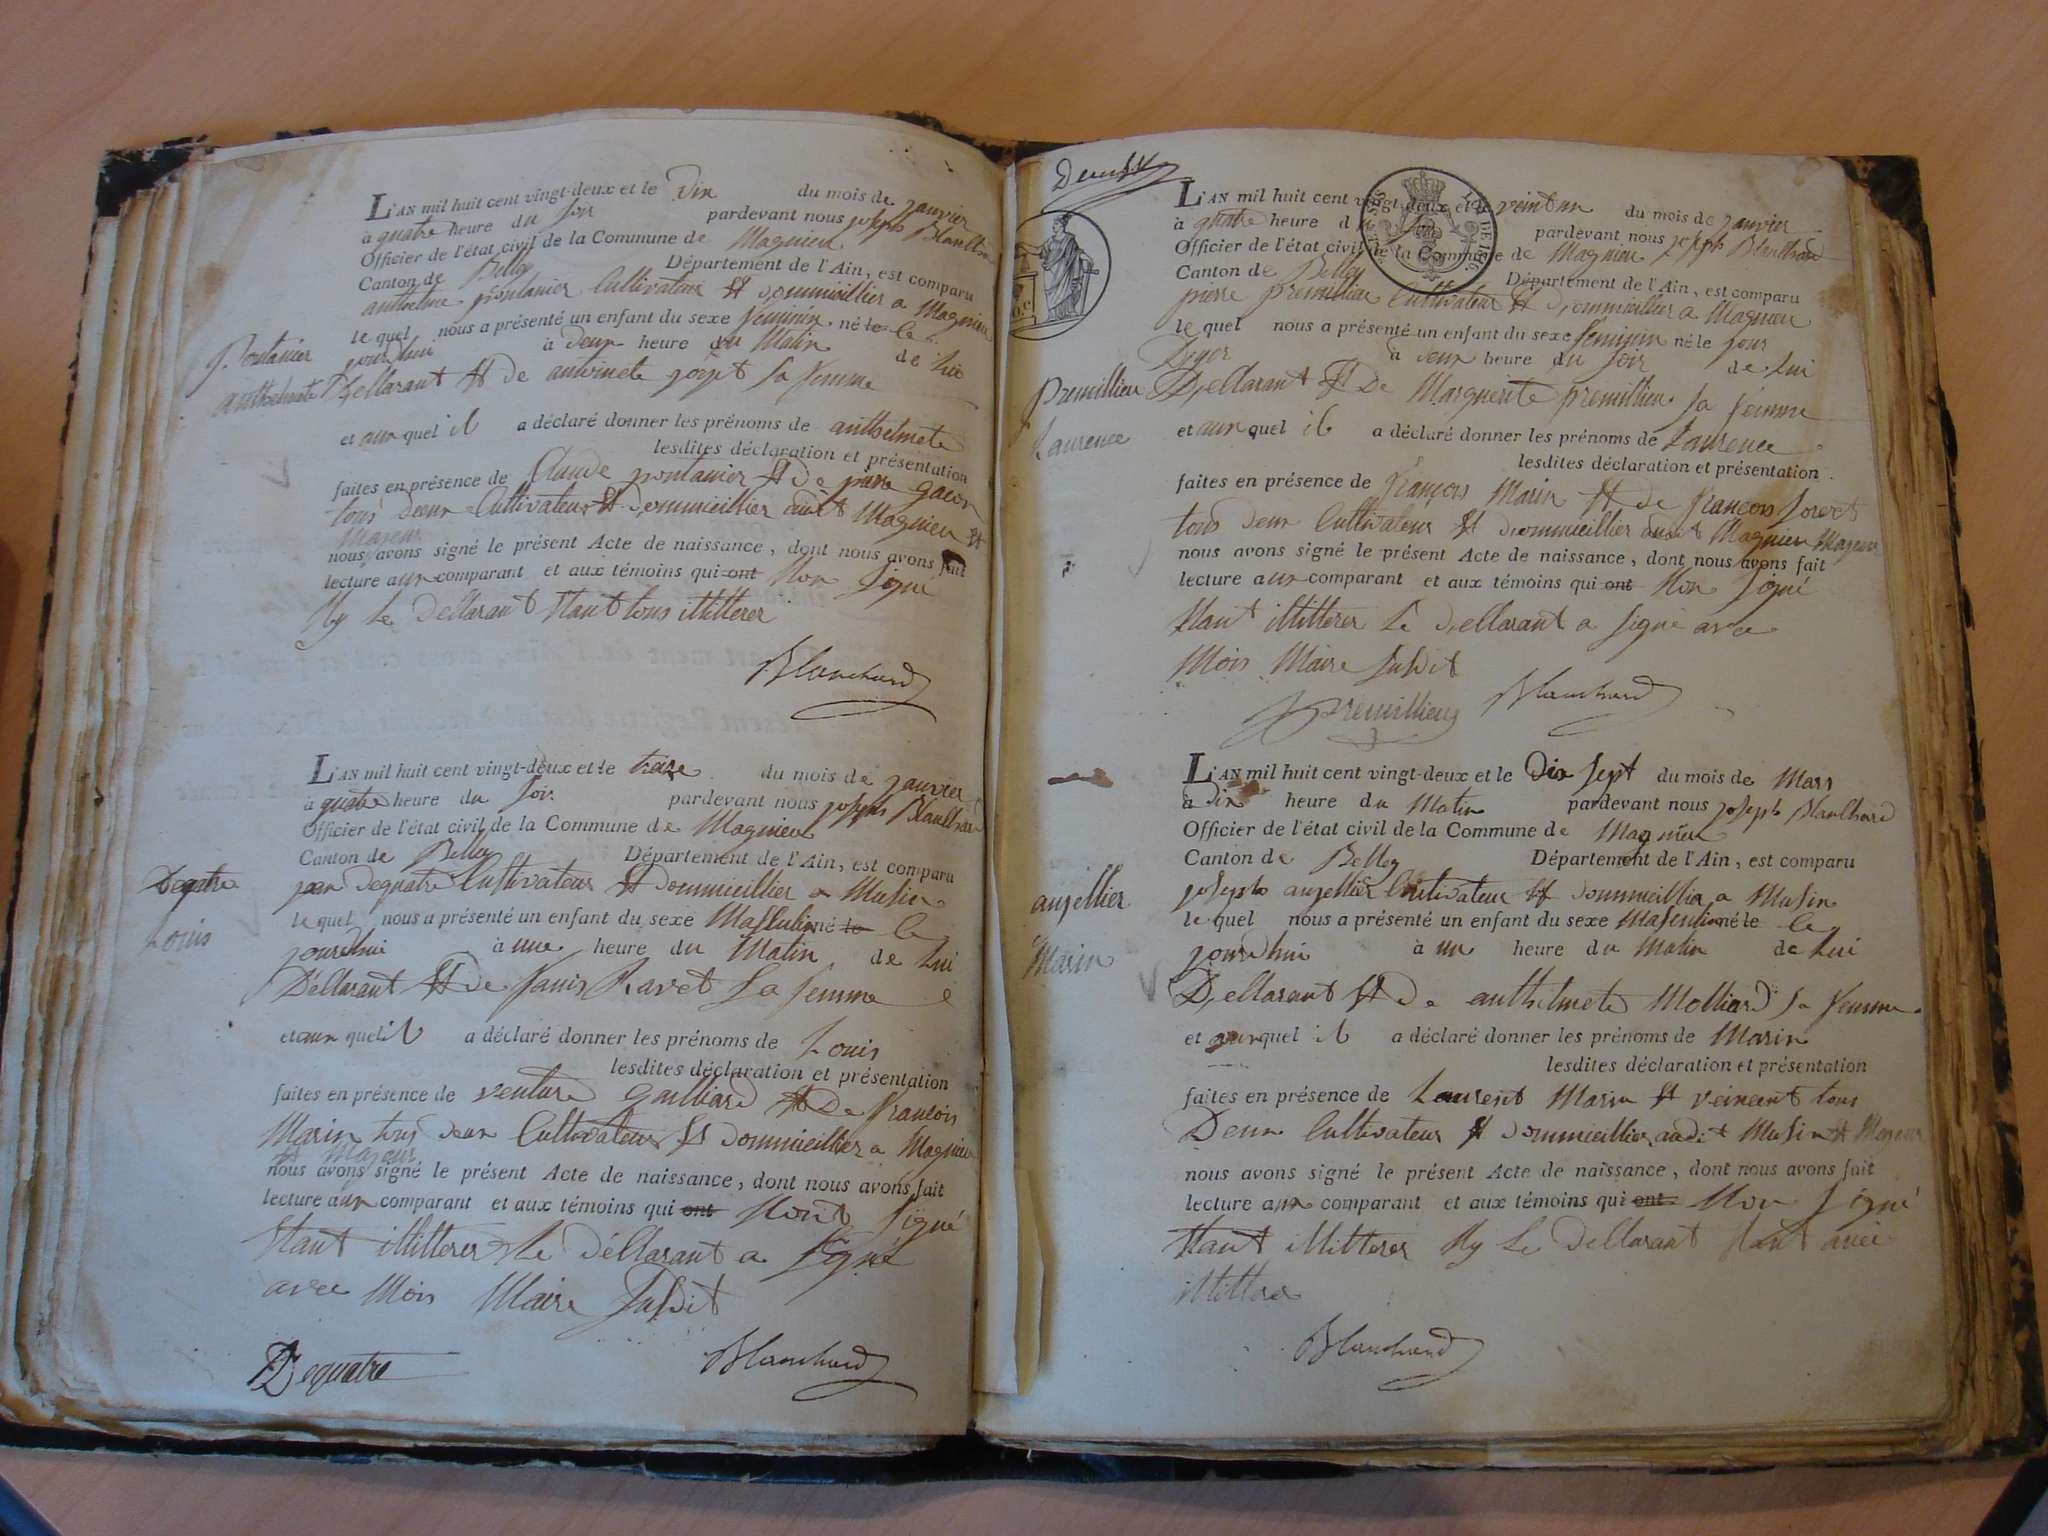 L'AN mil huit cent vingt-deux et le Dix du mois de janvier
à quatre heure du soir pardevant nous joseph Blanchard
Officier de l'état civil de la Commune de Magnieu
Canton de Belley Département de l'Ain, est comparu
anthelme pontanier Cultivateur et dommicillier a Magnieu
le quel nous a présenté un enfant du sexe feminin né le ce
jourdhui à deux heure du Matin de lui
Pontanier
anthelmete
Dellarant et de antoinete goyet sa femme
et aux quel il a déclaré donner les prénoms de anthelmete
lesdites déclaration et présentation
faites en présence de Claude pontanier et de pierre gacon
tous deux Cultivateur et dommicillier audit Magnieu et
Majeur
nous avons signé le présent Acte de naissance, dont nous avons fait
lecture aux comparant et aux témoins qui ont Non signé
Ny le Dellarant etant tous illitterer
Blanchard
L'AN mil huit cent vingt-deux et le treze du mois de janvier
à quatre heure du soir pardevant nous joseph Blanchard
Officier de l'état civil de la Commune de Magnieu
Canton de Belley Département de l'Ain, est comparu
Dequatre
Louis
jean Dequatre Cultivateur et dommicillier a Musin
le quel nous a présenté un enfant du sexe Masculin né le ce
jourdhui à une heure du Matin de lui
Dellarant et de Ravet sa femme
et aux quel il a déclaré donner les prénoms de Louis
lesdites déclaration et présentation
faites en présence de venture gailliard et De françois
Marin tous deux Cultivateur et dommicillier a Magnieu
et Majeur
nous avons signé le présent Acte de naissance, dont nous avons fait
lecture aux comparant et aux témoins qui ont Nont signé
etant illitterer le Déllarant a signé
avec Mois Maire susdit
Dequatre Blanchard
Deux
L'AN mil huit cent vingt-deux et le veint un du mois de janvier
à quatre heure du soir pardevant nous joseph Blanchard
Officier de l'état civil de la Commune de Magnieu
Canton de Belley Département de l'Ain, est comparu
pierre premillieu Cultivateur et dommicillier a Magnieu
le quel nous a présenté un enfant du sexe feminin né le jour
Dyer à deux heure du soir de lui
premillieu
Laurence
Dellarant et De Marguerite premillieu sa femme
et aux quel il a déclaré donner les prénoms de Laurence
lesdites déclaration et présentation
faites en présence de françois Marin et de françois
tous deux Cultivateur et dommicillier audit Magnieu Majeur
nous avons signé le présent Acte de naissance, dont nous avons fait
lecture aux comparant et aux témoins qui ont Non signé
etant illitterer le dellarant a signé avec
Mois Maire susdit
premillieu Blanchard
L'AN mil huit cent vingt-deux et le Dix sept du mois de Mars
à Dix heure du Matin pardevant nous joseph Blanchard
Officier de l'état civil de la Commune de Magnieu
Canton de Belley Département de l'Ain, est comparu
anjellier
Marin
joseph anjellier Cultivateur et dommicillier a Musin
le quel nous a présenté un enfant du sexe Masculin né le ce
jourdhui à un heure du Matin de lui
Dellarant et de anthelmete Molliard sa femme
et aux quel il a déclaré donner les prénoms de Marin
lesdites déclaration et présentation
faites en présence de Laurent Marin et veincent tous
Deux Cultivateur et dommicillier audit Musin et Majeur
nous avons signé le présent Acte de naissance, dont nous avons fait
lecture aux comparant et aux témoins qui ont Non signé
etant illitterer Ny le Dellarant etant
illitterer
Blanchard